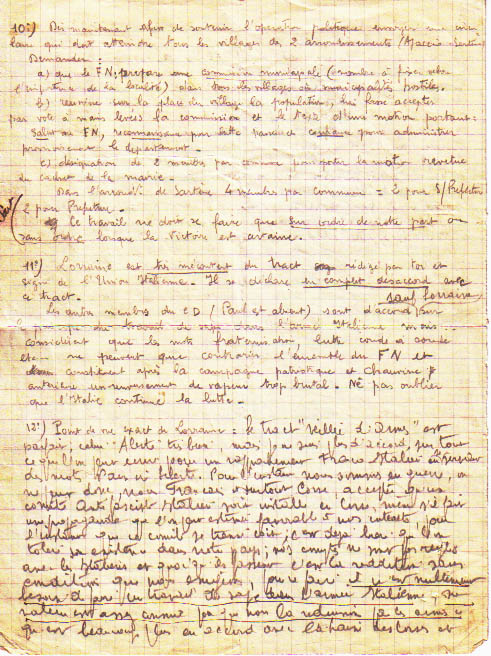 10°) Dès maintenant afin de soutenir l'opération politique envoyer une circu
laire qui doit atteindre tous les villages des 2 arrondissements (Ajaccio - Sartène
Demander :
a) que le F.N. prépare une commission municipale (nombre à fixer selon
l'importance de la localité) dans tous les villages à municipalités hostiles.
b) réunir sur la place du village la population, lui faire accepter
par vote à mains levées la commission et le texte d'une motion portant :
Salut au FN, reconnaissance pour lutte confiance pour administrer
provisoirement le département.
c) désignation de 2 membres par commune pour porter la motion revêtue
du cachet de la mairie.
Dans l'arrondt de Sartène 4 membres par commune = 2 pour S/Préfecture
2 pour Préfecture.
Ce travail ne doit se faire que sur ordre de notre part ou
sans ordre lorsque la victoire est certaine.
11°) Lorraine est très mécontent du tract rédigé par toi et
signé de l'Union Italienne. Il se déclare en complet désaccord avec
ce tract. sauf Lorraine
Les autres membres du CD (Paul est absent) sont d'accord sur
le principe du travail de sape dans l'armée Italienne mais
considèrent que les mots fraternisation, lutte coude à coude
etc ne peuvent que contrarier l'ensemble du FN et
constituent après la campagne patriotique et chauvine
antérieure un renversement de vapeur trop brutal. Ne pas oublier
que l'Italie continue la lutte.
12°) Point de vue exact de Lorraine : le tract "veillée d'armes" est
parfait ; celui "Alerte" très bien, mais je ne suis plus d'accord sur tout
ce que l'on peut écrire pour un rapprochement Franco Italien
des mots Paix et liberté. Pour l'instant nous sommes en guerre, on
ne peut donc, nous Français et surtout Corse, accepter qu'un
comité Anti fasciste Italien soit installé en Corse, même s'il fait
une propagande que l'on peut estimer favorable à nos intérêts, pour
l'instant que ce comité se tienne coi, c'est déjà beau qu'on
tolère sa présence dans notre pays ; nos comptes ne sont pas réglés
avec les Italiens et quoiqu'ils fassent c'est la reddition sans
condition que nous exigeons, pour ce faire il n'est nullement
besoin de faire un travail de sape dans l'armée Italienne, sa
valeur est assez connue pour que nous la réduisions par les armes ce
qui est beaucoup plus en accord avec les haines des corses et